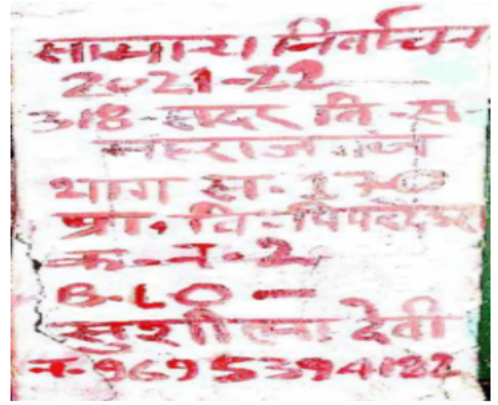 सामान्य निर्वाचन
2021-22
318-सदर वि-स
महराजगंज
भाग सं-170
प्रा. वि-पिपरदेउरा
क. न. 2
B.LO -
सुशीला देवी
न. 9695394182